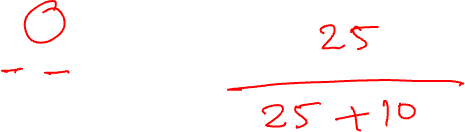 25
25 + 10